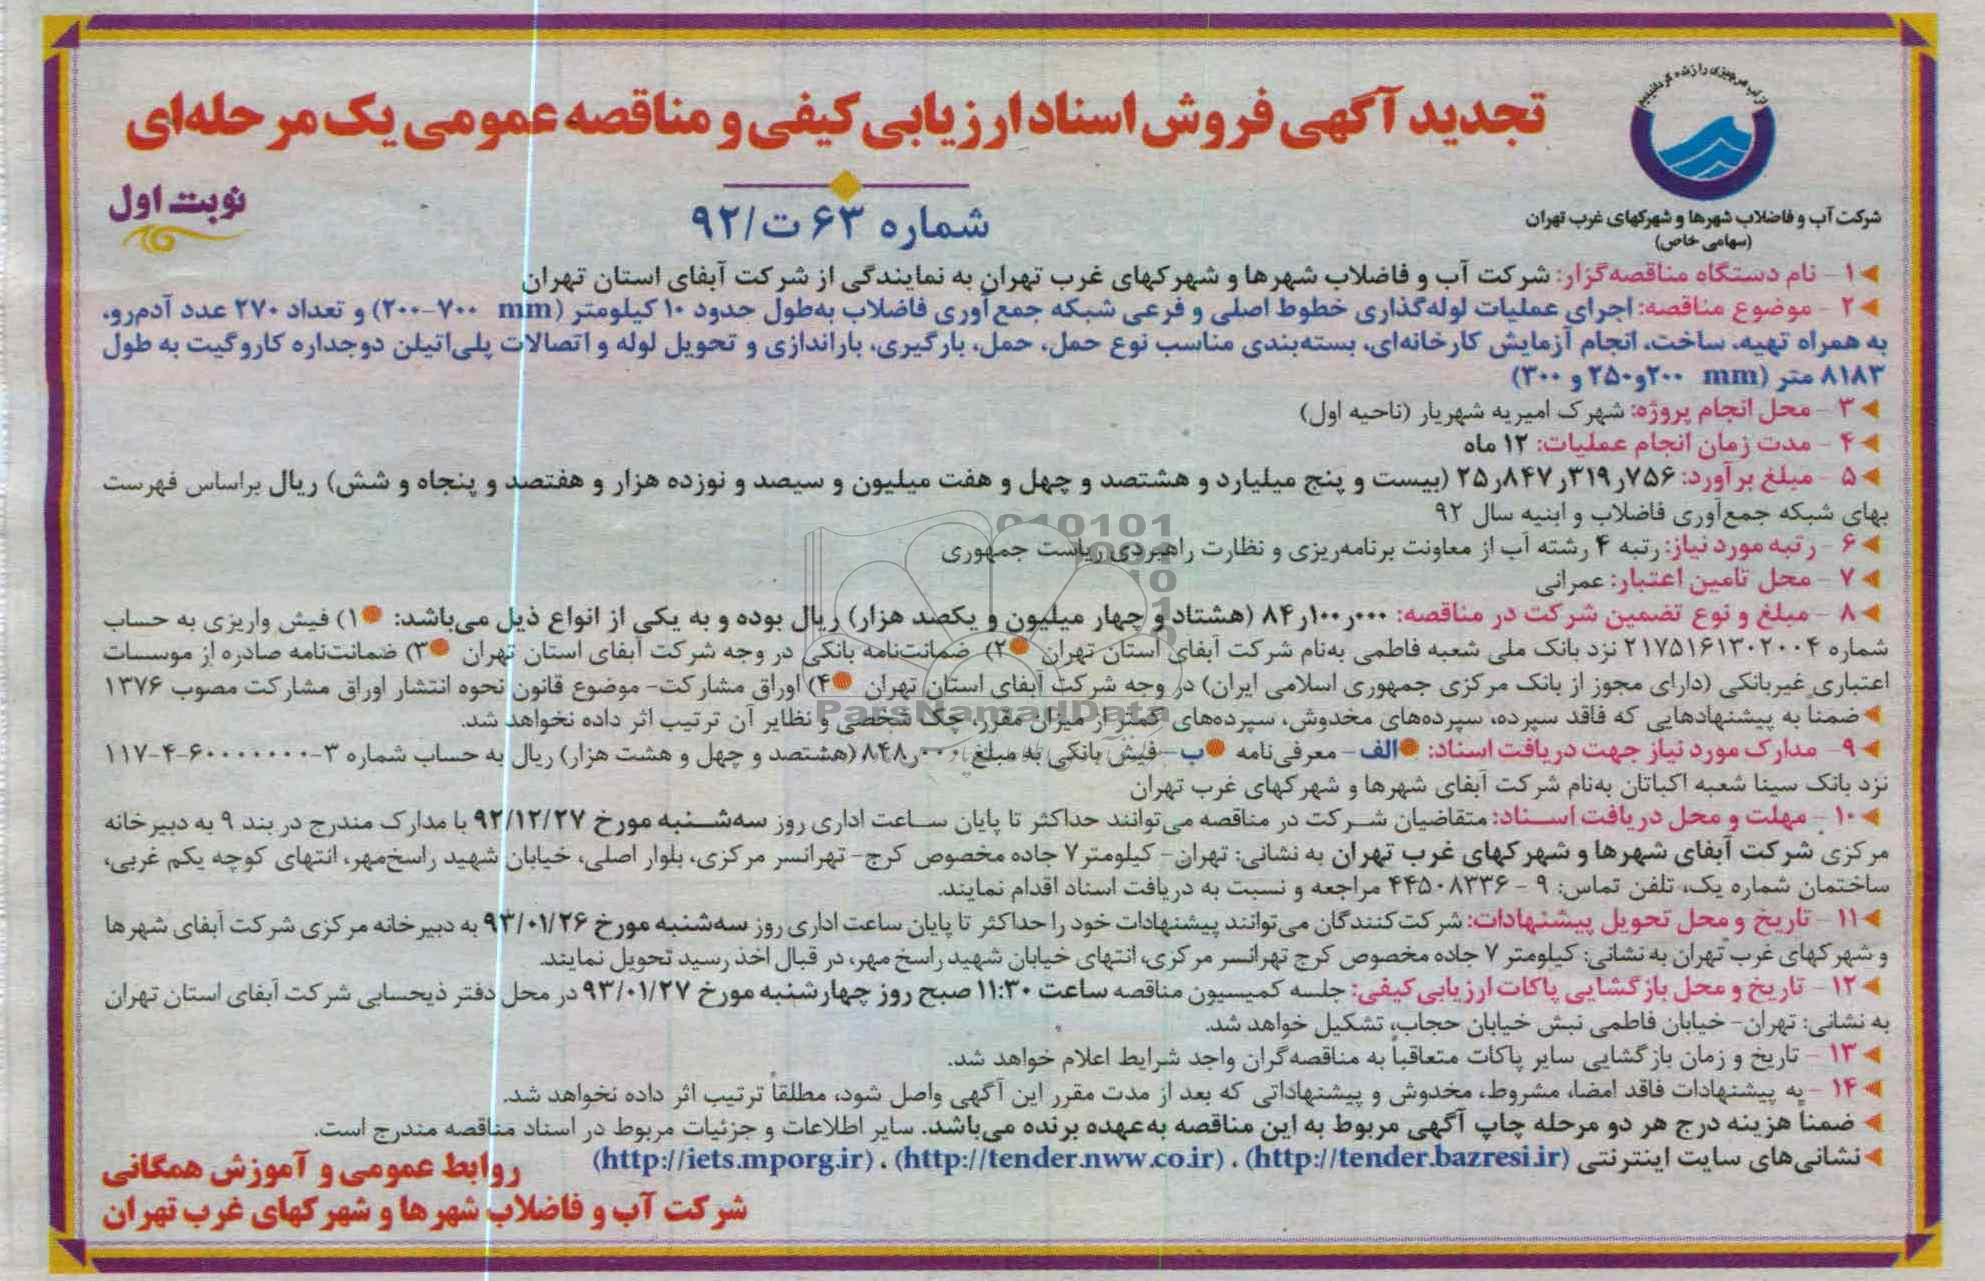 از آب هر چیزی را زنده گردانیدیم
تجدید آگهی فروش اسناد ارزیابی کیفی و مناقصه عمومی یک مرحله‌ای
نوبت اول
شماره ۶۳ ت/۹۲
شرکت آب و فاضلاب شهرها و شهرکهای غرب تهران
(سهامی خاص)
۱ - نام دستگاه مناقصه‌گزار: شرکت آب و فاضلاب شهرها و شهرکهای غرب تهران به نمایندگی از شرکت آبفای استان تهران
۲ - موضوع مناقصه: اجرای عملیات لوله‌گذاری خطوط اصلی و فرعی شبکه جمع‌آوری فاضلاب به‌طول حدود ۱۰ کیلومتر (mm ۷۰۰-۲۰۰) و تعداد ۲۷۰ عدد آدم‌رو،
به همراه تهیه، ساخت، انجام آزمایش کارخانه‌ای، بسته‌بندی مناسب نوع حمل، حمل، بارگیری، باراندازی و تحویل لوله و اتصالات پلی‌اتیلن دوجداره کاروگیت به طول
۸۱۸۳ متر (mm ۲۰۰و۲۵۰ و ۳۰۰)
۳ - محل انجام پروژه: شهرک امیریه شهریار (ناحیه اول)
۴ - مدت زمان انجام عملیات: ۱۲ ماه
۵ - مبلغ برآورد: ۲۵٫۸۴۷٫۳۱۹٫۷۵۶ (بیست و پنج میلیارد و هشتصد و چهل و هفت میلیون و سیصد و نوزده هزار و هفتصد و پنجاه و شش) ریال براساس فهرست
بهای شبکه جمع‌آوری فاضلاب و ابنیه سال ۹۲
۶ - رتبه مورد نیاز: رتبه ۴ رشته آب از معاونت برنامه‌ریزی و نظارت راهبردی ریاست جمهوری
۷ - محل تامین اعتبار: عمرانی
۸ - مبلغ و نوع تضمین شرکت در مناقصه: ۸۴٫۱۰۰٫۰۰۰ (هشتاد و چهار میلیون و یکصد هزار) ریال بوده و به یکی از انواع ذیل می‌باشد: ۱) فیش واریزی به حساب
شماره ۲۱۷۵۱۶۱۳۰۲۰۰۴ نزد بانک ملی شعبه فاطمی به‌نام شرکت آبفای استان تهران ۲) ضمانت‌نامه بانکی در وجه شرکت آبفای استان تهران ۳) ضمانت‌نامه صادره از موسسات
اعتباری غیربانکی (دارای مجوز از بانک مرکزی جمهوری اسلامی ایران) در وجه شرکت آبفای استان تهران ۴) اوراق مشارکت- موضوع قانون نحوه انتشار اوراق مشارکت مصوب ۱۳۷۶
ضمنا به پیشنهادهایی که فاقد سپرده، سپرده‌های مخدوش، سپرده‌های کمتر از میزان مقرر، چک شخصی و نظایر آن ترتیب اثر داده نخواهد شد.
۹- مدارک مورد نیاز جهت دریافت اسناد: الف- معرفی‌نامه ب- فیش بانکی به مبلغ ۸۴۸٫۰۰۰ (هشتصد و چهل و هشت هزار) ریال به حساب شماره ۳-۶۰۰۰۰۰۰۰-۴-۱۱۷
نزد بانک سینا شعبه اکباتان به‌نام شرکت آبفای شهرها و شهرکهای غرب تهران
۱۰ - مهلت و محل دریافت اسناد: متقاضیان شرکت در مناقصه می‌توانند حداکثر تا پایان ساعت اداری روز سه‌شنبه مورخ ۹۲/۱۲/۲۷ با مدارک مندرج در بند ۹ به دبیرخانه
مرکزی شرکت آبفای شهرها و شهرکهای غرب تهران به نشانی: تهران- کیلومتر۷ جاده مخصوص کرج- تهرانسر مرکزی، بلوار اصلی، خیابان شهید راسخ‌مهر، انتهای کوچه یکم غربی،
ساختمان شماره یک، تلفن تماس: ۹ - ۴۴۵۰۸۳۳۶ مراجعه و نسبت به دریافت اسناد اقدام نمایند.
۱۱ - تاریخ و محل تحویل پیشنهادات: شرکت‌کنندگان می‌توانند پیشنهادات خود را حداکثر تا پایان ساعت اداری روز سه‌شنبه مورخ ۹۳/۰۱/۲۶ به دبیرخانه مرکزی شرکت آبفای شهرها
و شهرکهای غرب تهران به نشانی: کیلومتر ۷ جاده مخصوص کرج تهرانسر مرکزی، انتهای خیابان شهید راسخ مهر، در قبال اخذ رسید تحویل نمایند.
۱۲ - تاریخ و محل بازگشایی پاکات ارزیابی کیفی: جلسه کمیسیون مناقصه ساعت ۱۱:۳۰ صبح روز چهارشنبه مورخ ۹۳/۰۱/۲۷ در محل دفتر ذیحسابی شرکت آبفای استان تهران
به نشانی: تهران- خیابان فاطمی نبش خیابان حجاب، تشکیل خواهد شد.
۱۳ - تاریخ و زمان بازگشایی سایر پاکات متعاقباً به مناقصه‌گران واجد شرایط اعلام خواهد شد.
۱۴ - به پیشنهادات فاقد امضا، مشروط، مخدوش و پیشنهاداتی که بعد از مدت مقرر این آگهی واصل شود، مطلقاً ترتیب اثر داده نخواهد شد.
ضمناً هزینه درج هر دو مرحله چاپ آگهی مربوط به این مناقصه به‌عهده برنده می‌باشد. سایر اطلاعات و جزئیات مربوط در اسناد مناقصه مندرج است.
نشانی‌های سایت اینترنتی (http://tender.bazresi.ir) ، (http://tender.nww.co.ir) ، (http://iets.mporg.ir)
روابط عمومی و آموزش همگانی
شرکت آب و فاضلاب شهرها و شهرکهای غرب تهران
ParsNamadData